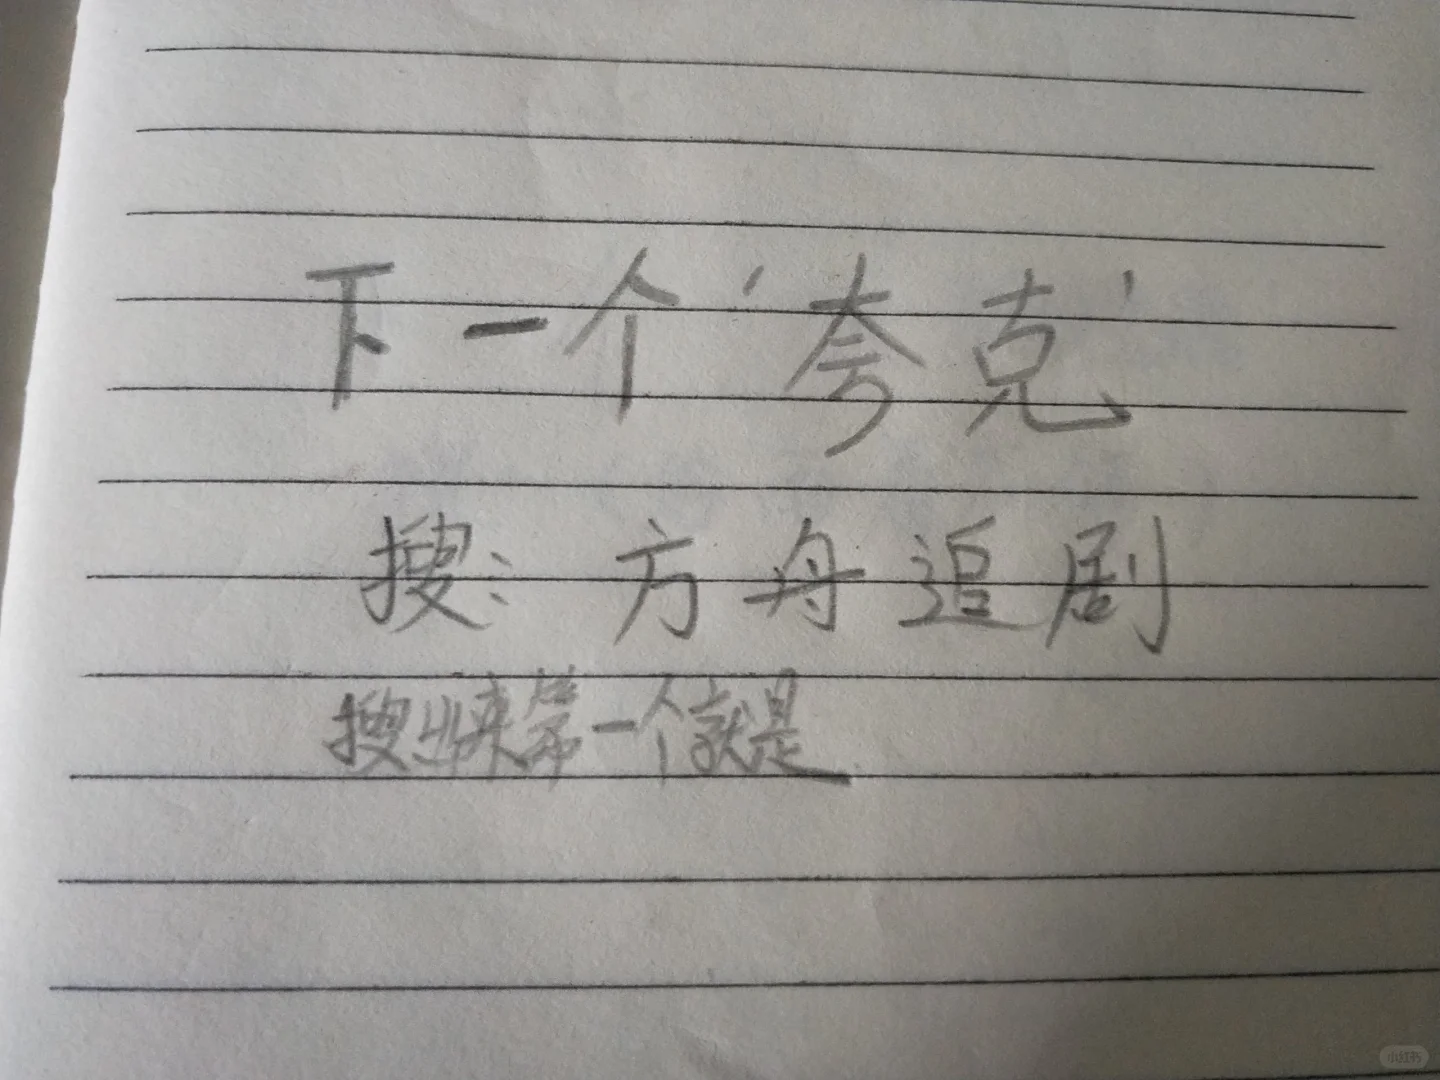 下一个‘夸克’
搜：方舟追剧
搜出来第一个就是
小红书